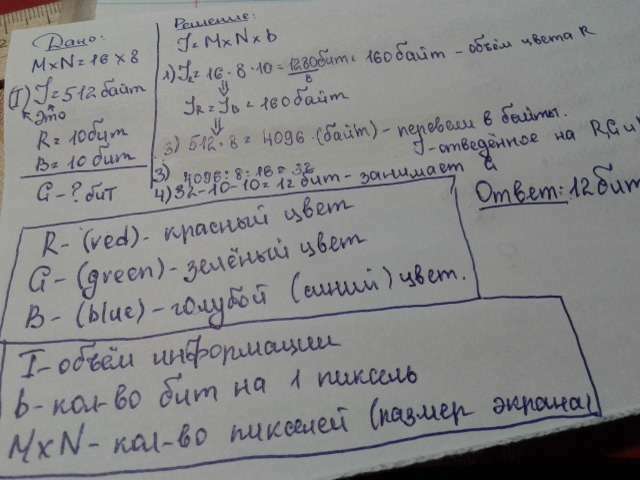 Дано:
M×N = 16×8
(I) J = 512 байт
это
R = 10 бит
B = 10 бит
G - ? бит
Решение:
J = M×N×b
1) J = 16·8·10 = 1280 бит = 160 байт - объём цвета R
8
J_R = J_B = 160 байт
3) 512·8 = 4096 (байт) - перевели в байты.
J - отведённое на RG и
3) 4096:8:16 = 32
4) 32-10-10 = 12 бит - занимает G
Ответ: 12 бит
R - (red) - красный цвет
G - (green) - зелёный цвет
B - (blue) - голубой (синий) цвет.
I - объём информации
b - кол-во бит на 1 пиксель
M×N - кол-во пикселей (размер экрана)